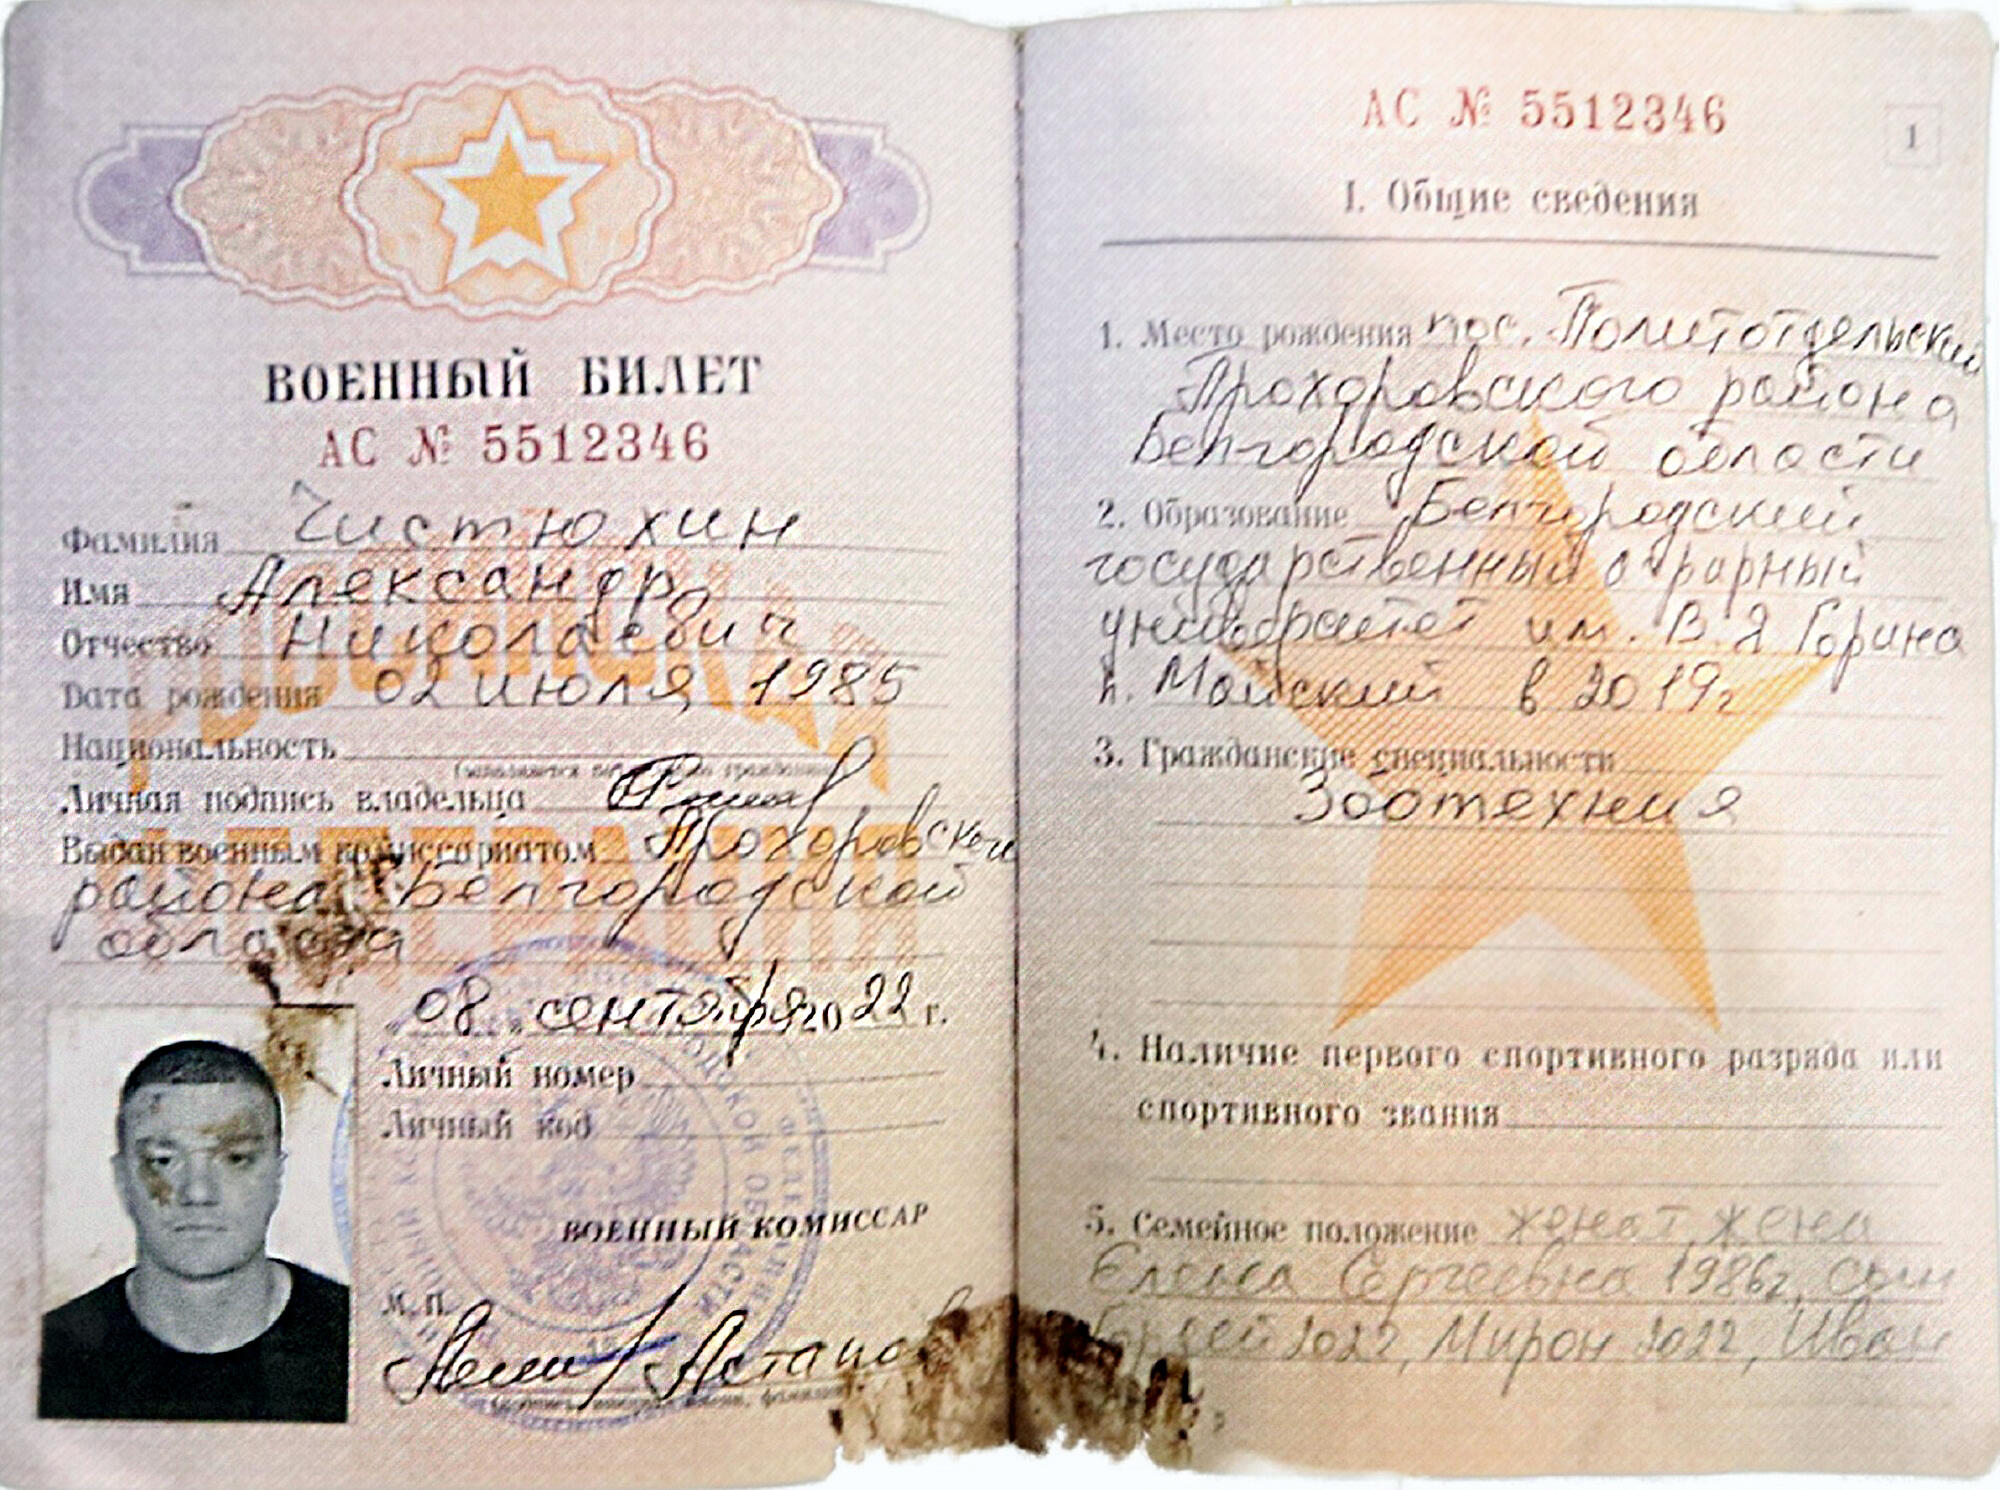 ВОЕННЫЙ БИЛЕТ
АС № 5512346
Фамилия Чистюхин
Имя Александр
Отчество Николаевич
Дата рождения 02 июля 1985
Национальность
Личная подпись владельца
Выдан военным комиссариатом Прохоровского
района Белгородской
области
08 сентября 2022 г.
Личный номер
Личный код
ВОЕННЫЙ КОМИССАР
М.П.
АС № 5512346
1
I. Общие сведения
1. Место рождения пос. Политотдельский
Прохоровского района
Белгородской области
2. Образование Белгородский
государственный аграрный
университет им. В.Я Горина
п. Майский в 2019г
3. Гражданские специальности
Зоотехния
4. Наличие первого спортивного разряда или
спортивного звания
5. Семейное положение женат, жена
Елена Сергеевна 1986г,
2022, Мирон 2022, Иван